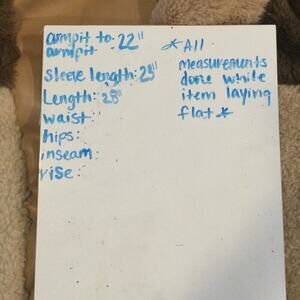 armpit to: 22"
armpit
sleeve length: 25"
Length: 28"
waist:
hips:
inseam:
rise:
*All
measurements
done while
item laying
flat*